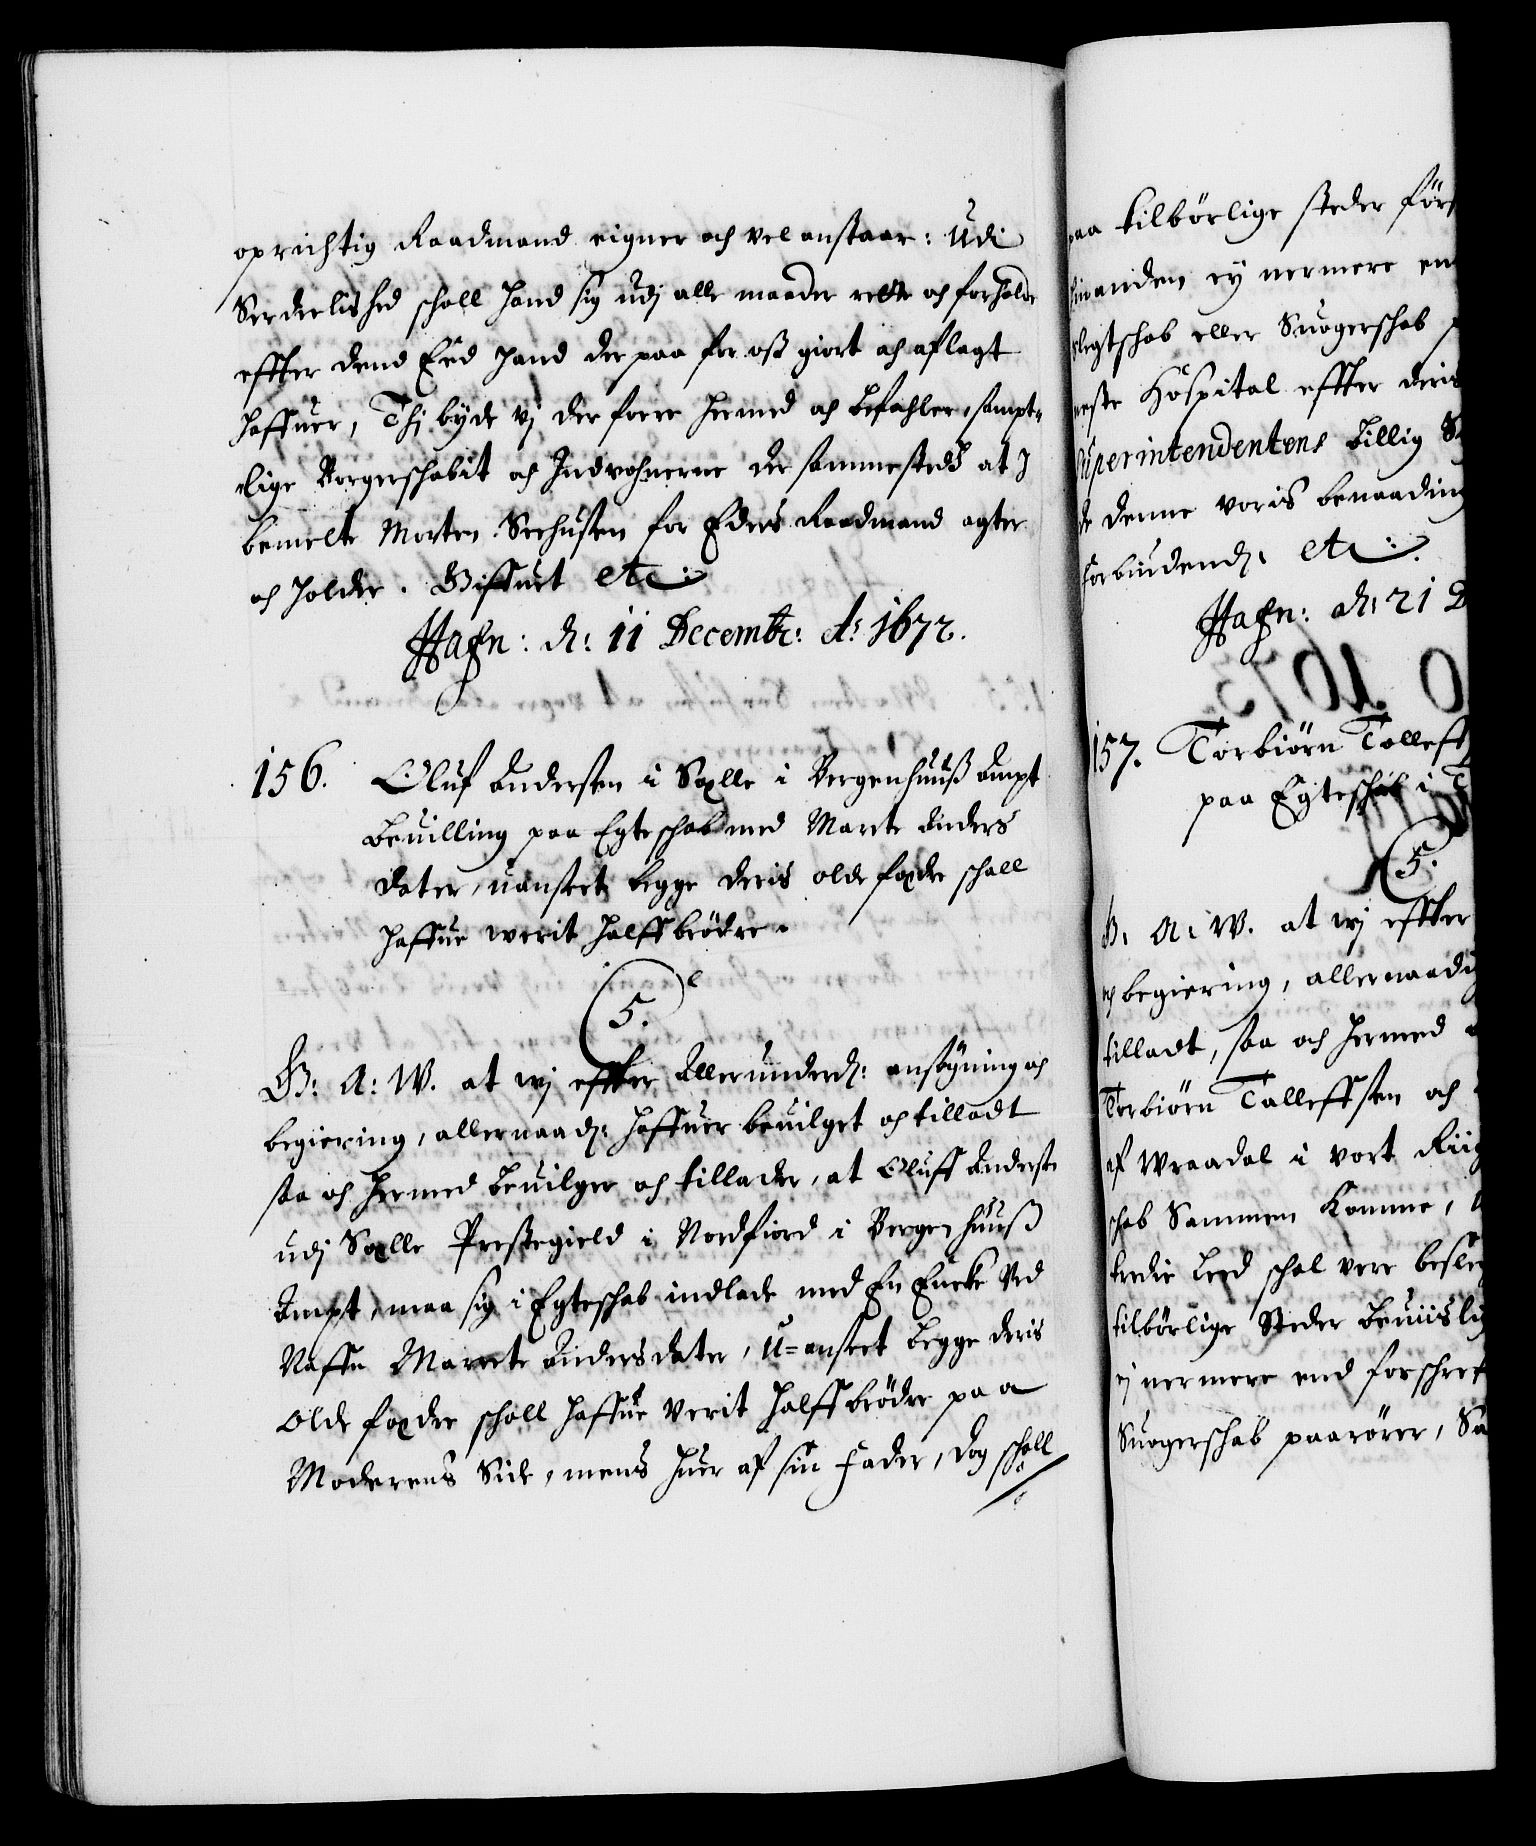 oprichtig Raadmand eigner och vel anstaar: Udi
Serdelished schall hand sig udj alle maader rette och forholde
effter dend Eed hand der paa for oß giort och aflagt
haffuer, Thj byde vj der forre hermed och befahler, sampt=
lige Borgerschabit och Indvohnerne der sammesteds at I
bemelte Morten Seehusen for Eders Raadmand agter
och holder. Giffuet etc:
Hafn: d: 11 Decembr: Ao 1672.
156. Oluf Andersen i Sølle i Bergenhuuß Ampt
Beuilling paa Egteschab med Marete Anders
dater, uanseet begge deris olde fædre schall
haffue werit halffbrödre.
5.
G: A: W. at wj effter Allerunderd: ansögning och
begiering, allernaad: haffuer beuilget och tilladt
saa och hermed beuilger och tillader, at Oluff Andersen
udj Sølle Prestegield i Nordfiord i Bergenhuuß
Ampt, maa sig i Egteschab indlade med En Encke Ved
Naffn Marete Andersdater, U=anseet begge deris
Olde fædre schall haffue Verit halffbrödre paa
Moderens Side, mens huer af sin Fader, dog schall
paa tilbörlige steder förs
hinanden ey nermere en
slegtschab eller Suogerschab
neste Hospital effter deris
Superintendentens billig S
de denne voris benaading
forbiudend: etc:
Hafn: d: 21 D
157. Torbiörn Tolleff
paa Egteschab i
5.
G: A: W. at wj effter
och begiering, allernaadig
tilladt, saa och hermed
Torbiörn Talleffsen och
af Wraadal i vort Riig
schab Sammen Komme,
tredie Leed schal vere besleg
tilbörlige Steder beuiislig
ej nermere end forschref
Suogerschab paarörer, Sa